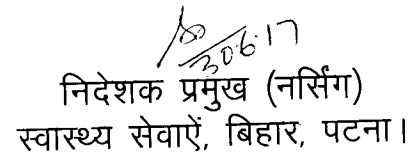 30.6.17
निदेशक प्रमुख (नर्सिंग)
स्वास्थ्य सेवाऐं, बिहार, पटना।